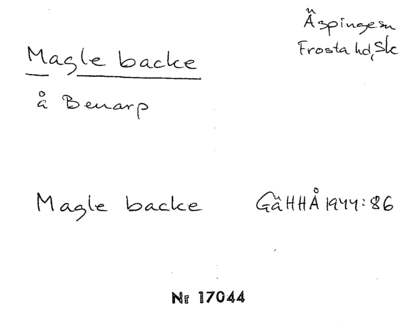 Äspinge sn
Frosta hd, Sk
Magle backe
å Benarp
Magle backe GäHHÅ 1944:86
Nr 17044